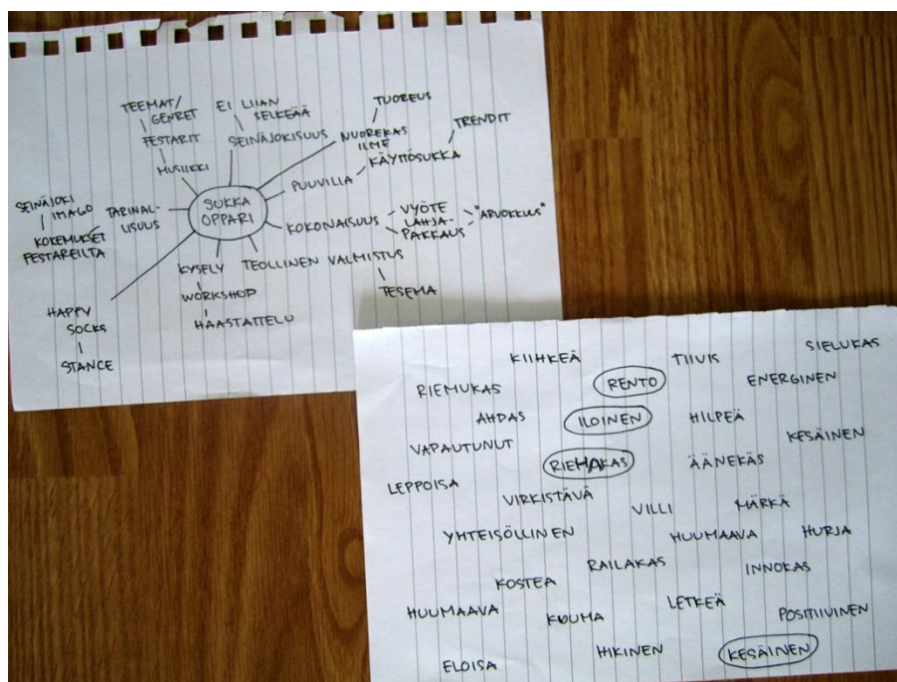 TEEMAT/
GENRET
FESTARIT
MUSIIKKI
EI LIIAN
SELKEÄÄ
SEINÄJOKISUUS
TUOREUS
NUOREKAS
ILME
TRENDIT
KÄYTTÖSUKKA
PUUVILLA
SUKKA
OPPARI
SEINÄJOKI
IMAGO
TARINAL-
LISUUS
KOKEMUKSET
FESTAREILTA
KOKONAISUUS
VYÖTE
LAHJA-
PAKKAUS
"ARVOKKUUS"
KYSELY
WORKSHOP
HAASTATTELU
TEOLLINEN VALMISTUS
TESEMA
HAPPY
SOCKS
STANCE
KIIHKEÄ TIIVIS SIELUKAS
RIEMUKAS RENTO ENERGINEN
AHDAS ILOINEN HILPEÄ
VAPAUTUNUT KESÄINEN
RIEMAKAS ÄÄNEKÄS
LEPPOISA VIRKISTÄVÄ
VILLI MÄRKÄ
YHTEISÖLLINEN HUUMAAVA HURJA
KOSTEA RAILAKAS INNOKAS
HUUMAAVA KUUMA LETKEÄ POSITIIVINEN
ELOISA HIKINEN KESÄINEN